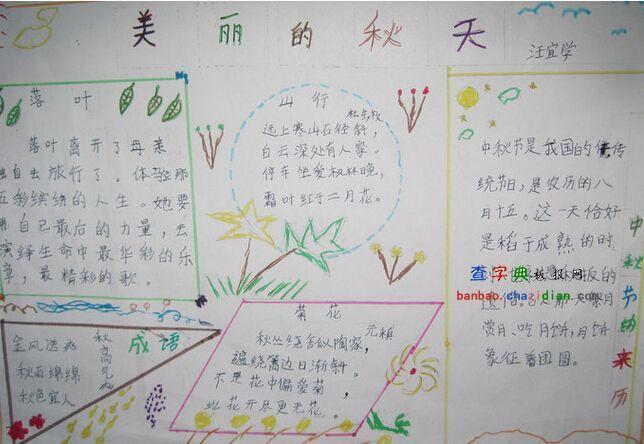 美丽的秋天
汪宜学
落叶
落叶离开了母亲
独自去旅行了。体验那
五彩缤纷的人生。她要
用自己最后的力量,去
演绎生命中最华彩的乐
章,最精彩的歌。
山行
杜牧
远上寒山石径斜,
白云深处有人家。
停车坐爱枫林晚,
霜叶红于二月花。
中秋节是我国的传
统节日,是农历的八
月十五。这一天恰好
是稻子成熟的时
赏月、吃月饼,月饼
象征着团圆。
中秋节的来历
查字典板报网
banbao.chazidian.com
成语
金风送爽
秋雨绵绵
秋色宜人
秋高气爽
菊花
元稹
秋丛绕舍似陶家,
遍绕篱边日渐斜。
不是花中偏爱菊,
此花开尽更无花。